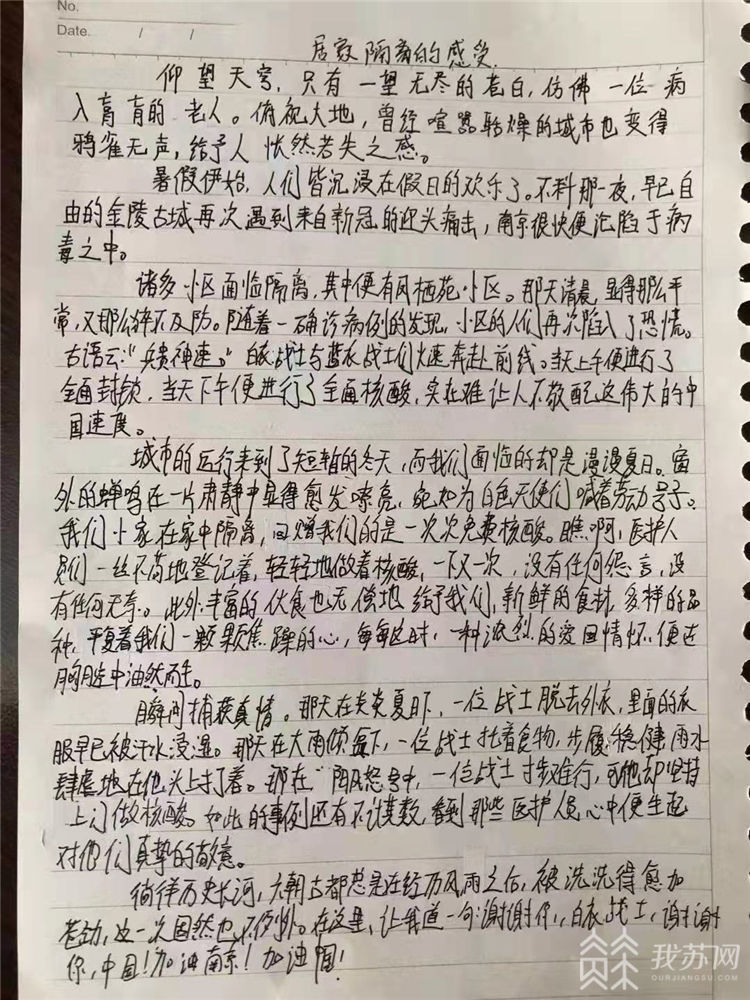 No.
Date. / /
居家隔离的感受
仰望天穹，只有一望无尽的苍白，仿佛一位病
入膏肓的老人。俯视大地，曾经喧嚣聒燥的城市也变得
鸦雀无声，给予人怅然若失之感。
暑假伊始，人们皆沉浸在假日的欢乐了。不料那一夜，早已自
由的金陵古城再次遇到来自新冠的迎头痛击，南京很快便沦陷于病
毒之中。
诸多小区面临隔离，其中便有凤栖苑小区。那天清晨，显得那么平
常，又那么猝不及防。随着一确诊病例的发现，小区的人们再次陷入了恐慌。
古语云：“兵贵神速。”白衣战士与蓝衣战士们火速奔赴前线。当天上午便进行了
全面封锁，当天下午便进行了全面核酸，实在难让人不敬配这伟大的中
国速度。
城市的运行来到了短暂的冬天，而我们面临的却是漫漫夏日。窗
外的蝉鸣在一片肃静中显得愈发嘹亮，宛如为白色天使们喊着劳动号子。
我们小家在家中隔离，回赠我们的是一次次免费核酸。瞧啊，医护人
员们一丝不苟地登记着，轻轻地做着核酸，一下又一次，没有任何怨言，没
有任何无奈。此外，丰富的伙食也无偿地给予我们，新鲜的食材，多样的品
种，平复着我们一颗颗焦躁的心，每每这时，一种浓烈的爱国情怀便在
胸腔中油然而生。
瞬间捕获真情。那天在炎炎夏日下，一位战士脱去外衣，里面的衣
服早已被汗水浸湿。那天在大雨倾盆下，一位战士托着食物，步履稳健，雨水
肆虐地在他头上打着。那在阴风怒号中，一位战士寸步难行，可他却坚持
上门做核酸。如此的事例还有不计其数，看到那些医护人员心中便生起
对他们真挚的敬意。
徜徉历史长河，六朝古都总是在经历风雨之后，被洗洗得愈加
苍劲，这一次固然也不例外。在这里，让我道一句：谢谢你，白衣战士，谢谢
你，中国！加油南京！加油中国！
我苏网
OURJIANGSU.COM